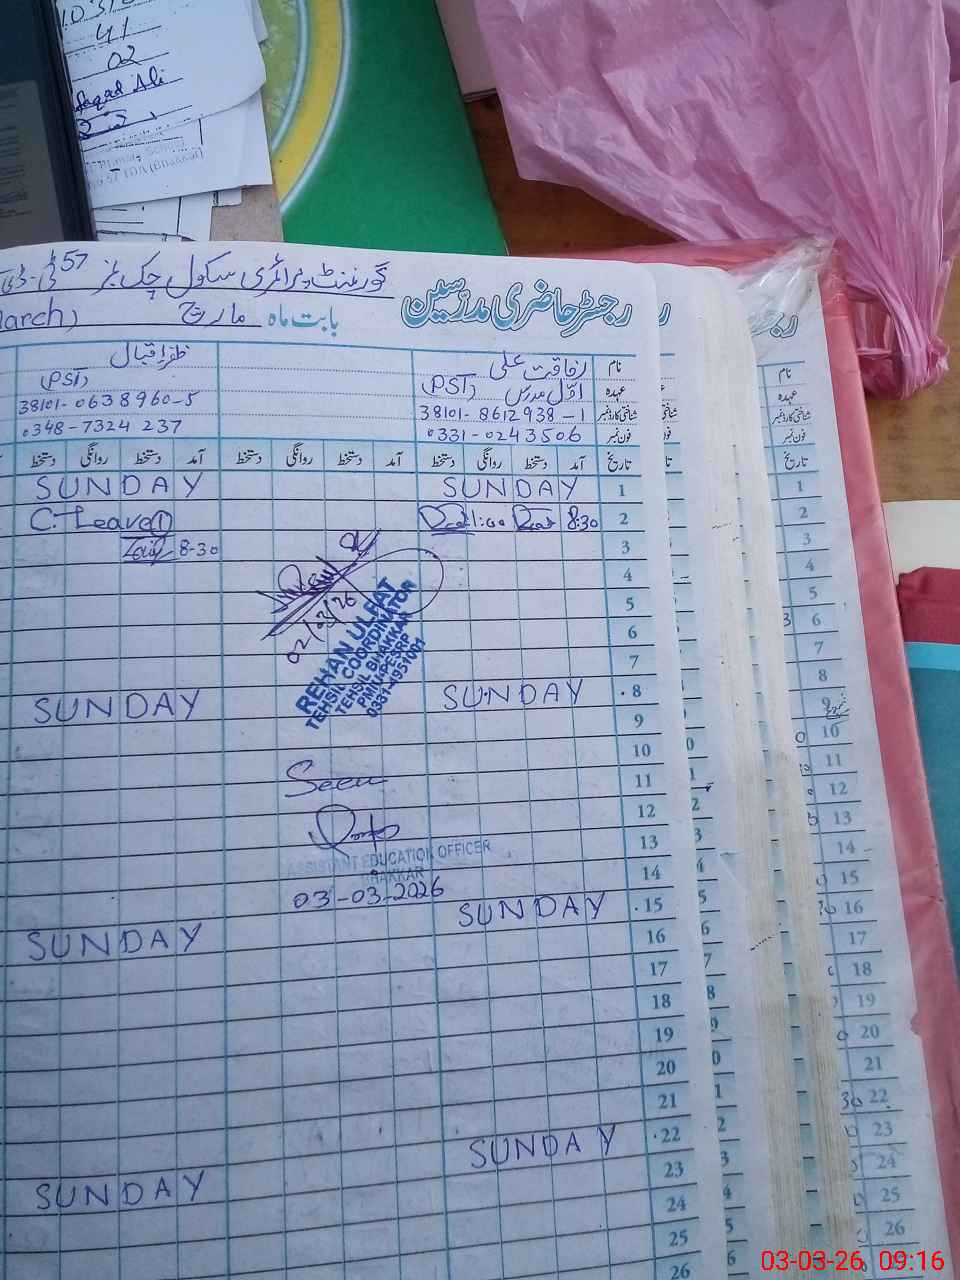 41
02
Ali
گورنمنٹ پرائمری سکول چک نمبر 57 ٹی ڈی
رجسٹر حاضری مدرسین
بابت ماہ مارچ (March)
نام رفاقت علی ظفر اقبال
عہدہ اوّل مدرس (PST) (PST)
شناختی کارڈ نمبر 38101-8612938-1 38101-0638960-5
فون نمبر 0331-0243506 0348-7324237
تاریخ آمد دستخط روانگی دستخط آمد دستخط روانگی دستخط آمد دستخط روانگی دستخط
1 SUNDAY SUNDAY
2 8:30 1:00 C. Leave (1)
3 8-30
4
5
02/03/26
REHAN ULFAT
TEHSIL COORDINATOR
TEHSIL BHAKKAR
PMIU-PESRP
0331-4951001
6
7
8 SUNDAY SUNDAY
9
10
11 Seen
12
13
ASSISTANT EDUCATION OFFICER
BHAKKAR
14
03-03-2026
15 SUNDAY SUNDAY
16
17
18
19
20
21
22 SUNDAY SUNDAY
23
24
25
26
نام
عہدہ
شناختی کارڈ نمبر
فون نمبر
تاریخ
1
2
3
4
5
6
7
8
9
10
11
12
13
14
15
16
17
18
19
20
21
22
23
24
25
26
03-03-26 09:16